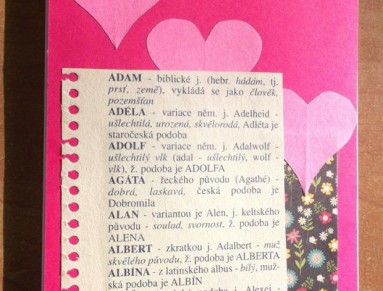 ADAM - biblické j. (hebr. hádám, tj.
prsť, země), vykládá se jako člověk,
pozemšťan
ADÉLA - variace něm. j. Adelheid -
ušlechtilá, urozená, skvělorodá, Adléta je
staročeská podoba
ADOLF - variace něm. j. Adalwolf -
ušlechtilý vlk (adal - ušlechtilý, wolf -
vlk), ž. podoba je ADOLFA
AGÁTA - řeckého původu (Agathé) -
dobrá, laskavá, česká podoba je
Dobromila
ALAN - variantou je Alen, j. keltského
původu - soulad, svornost, ž. podoba je
ALENA
ALBERT - zkratkou j. Adalbert - muž
skvělého původu, ž. podoba je ALBERTA
ALBÍNA - z latinského albus - bílý, muž-
ská podoba je ALBÍN
podoba j. Alexej -